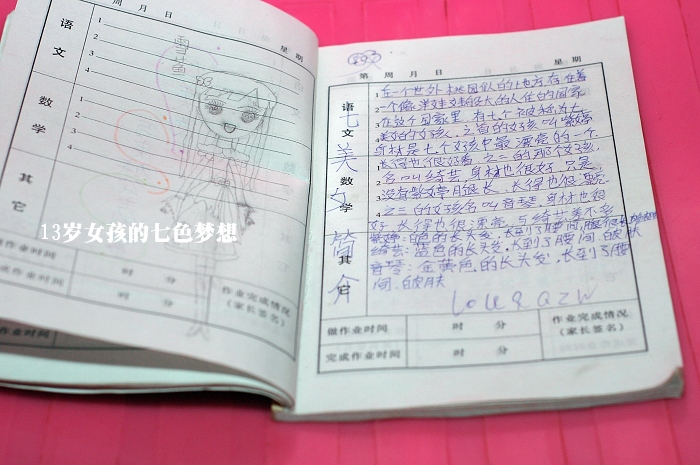 月 日
星 期
语 文
1
2
3
4
数 学
1
2
3
4
其 它
雪
苗
13岁女孩的七色梦想
作业时间
时 分
作业完成情况
(家长签名)
业时间
时 分
第 周 月 日
星 期
语 文
数 学
其 它
七美女简介
1在一个世外桃园似的地方存在着
2一个像洋娃娃般大的人住的国家
3在这个国家里,有七个被称为七
4美的女孩,之首的女孩叫紫婷
身材是七个女孩中最漂亮的一个
长得也很好看,之二的那个女孩,
名叫绮芸,身材也很好,只是
没有紫婷月很长,长得也很漂亮
之三的女孩名叫音琴,身材也很
好,长得也很漂亮,与绮芸差不多
绮芸:蓝色的长头发,长到了腰间
音琴:金黄色的长头发,长到了腰
间
做作业时间
时 分
作业完成情况
(家长签名)
完成作业时间
时 分